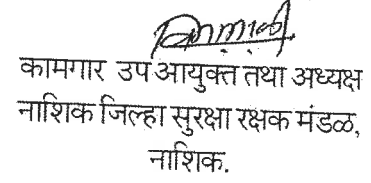 कामगार उप आयुक्त तथा अध्यक्ष
नाशिक जिल्हा सुरक्षा रक्षक मंडळ,
नाशिक.